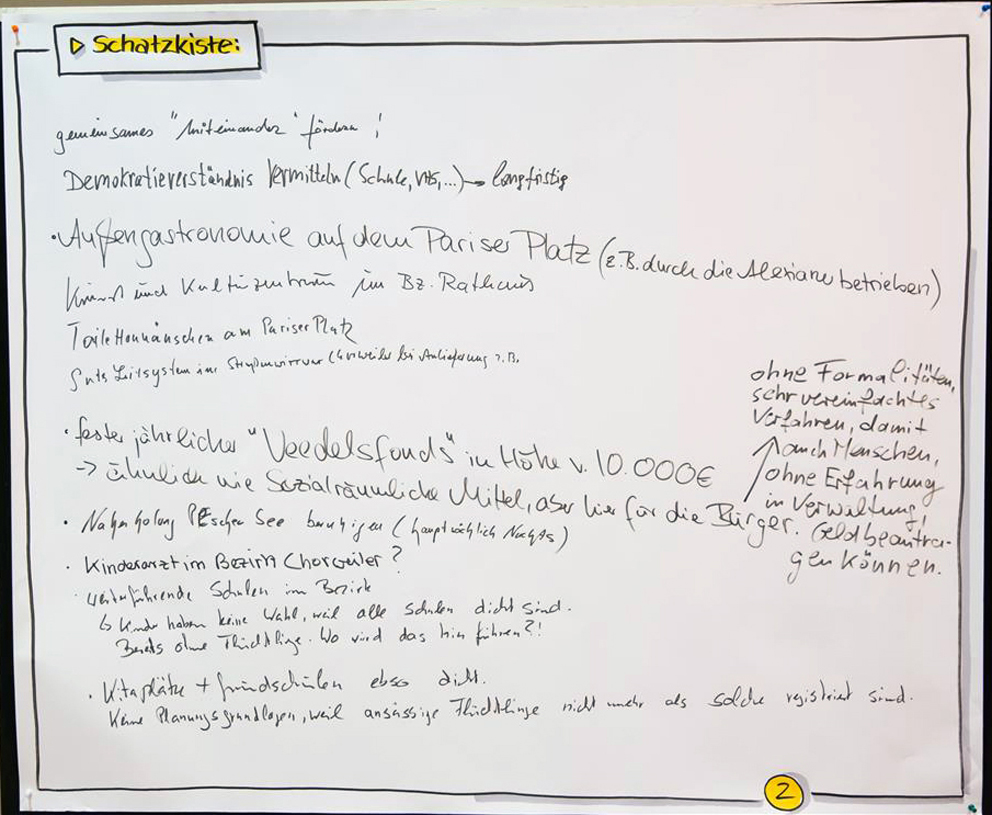 ▷ Schatzkiste:
gemeinsames "Miteinander" fördern!
Demokratieverständnis vermitteln (Schule, VHS, ...) → langfristig
• Außengastronomie auf dem Pariser Platz (z.B. durch die Alexianer betrieben)
Kunst und Kulturzentrum im Bz. Rathaus
Toilettenhäuschen am Pariser Platz
Gutes Leitsystem im Chorweiler bei Anlieferung z.B.
• fester jährlicher "Veedelsfonds" in Höhe v. 10.000€
-> ähnlich wie Sozialräumliche Mittel, aber hier für die Bürger.
ohne Formalitäten,
sehr vereinfachtes
Verfahren, damit
auch Menschen,
ohne Erfahrung
in Verwaltung,
Geld beantra-
gen können.
• Naherholung PEscher See beruhigen (hauptsächlich Nachts)
• Kinderarzt im Bezirk Chorweiler?
• weiterführende Schulen im Bezirk
↳ Kinder haben keine Wahl, weil alle Schulen dicht sind.
Bereits ohne Flüchtlinge. Wo wird das hin führen?!
• Kitaplätze + Grundschulen ebso dicht.
Keine Planungsgrundlagen, weil ansässige Flüchtlinge nicht mehr als solche registriert sind.
2